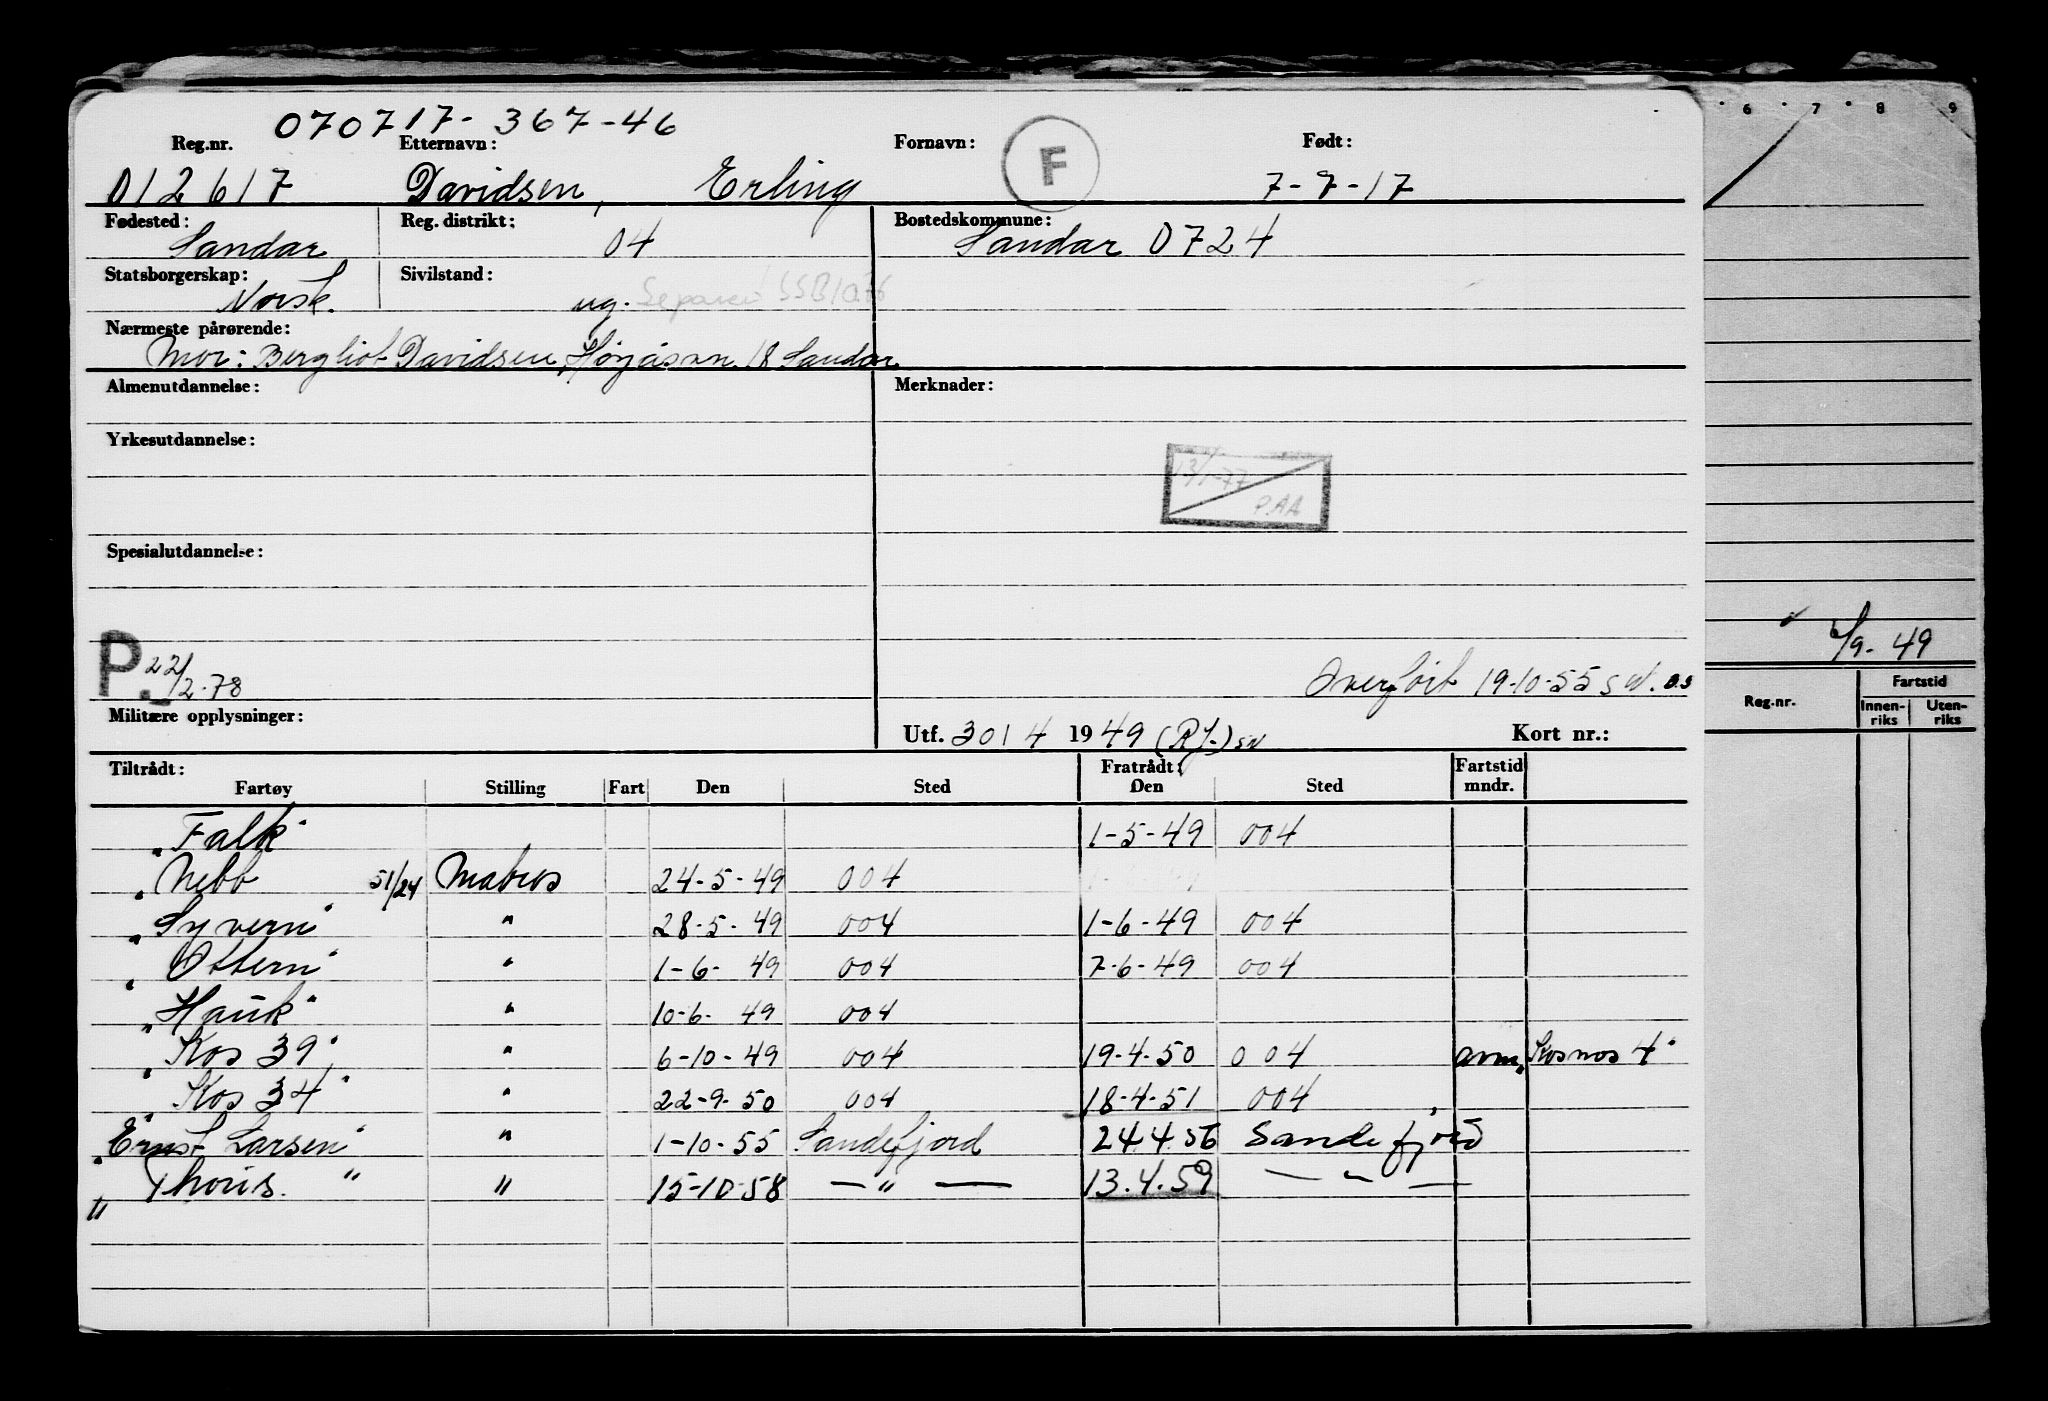 070717-367-46
Reg.nr. Etternavn: Fornavn: F Født:
012617 Davidsen, Erling 7-7-17
Fødested: Reg. distrikt: Bostedskommune:
Sandar 04 Sandar 0724
Statsborgerskap: Sivilstand:
Norsk. ug. Separert SSB/0.76
Nærmeste pårørende:
Mor: Bergliot Davidsen, 18 Sandar
Almenutdannelse: Merknader:
Yrkesutdannelse:
13/1-77
P.AA
Spesialutdannelse:
P. 22/2-78
Overført 19-10-55 SW.
Militære opplysninger:
Utf. 30/4 1949 (RJ-) sw Kort nr.:
Tiltrådt: Fratrådt: Fartstid
Fartøy Stilling Fart Den Sted Den Sted mndr.
"Falk" 1-5-49 004
"Nebb 51/24 Matros 24-5-49 004
"Syvern" " 28-5-49 004 1-6-49 004
"Ottern" " 1-6-49 004 7-6-49 004
"Hauk" " 10-6-49 004
"Kos 39" " 6-10-49 004 19-4-50 004 avm "Kosmos 4"
"Kos 34" " 22-9-50 004 18-4-51 004
"Ernst Larsen" " 1-10-55 Sandefjord 24.4.56 Sandefjord
"Thoris." " 15-10-58 — " — 13.4.59 — " —
6 7 8 9
6/9-49
Reg.nr. Fartstid
Innen-riks Uten-riks